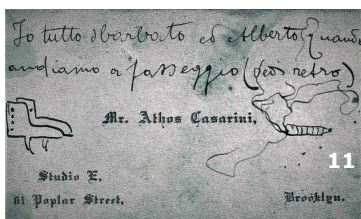 Io tutto sbarbato ed Alberto quando
andiamo a passeggio (vedi retro)
Mr. Athos Casarini,
11
Studio E,
61 Poplar Street,
Brooklyn.